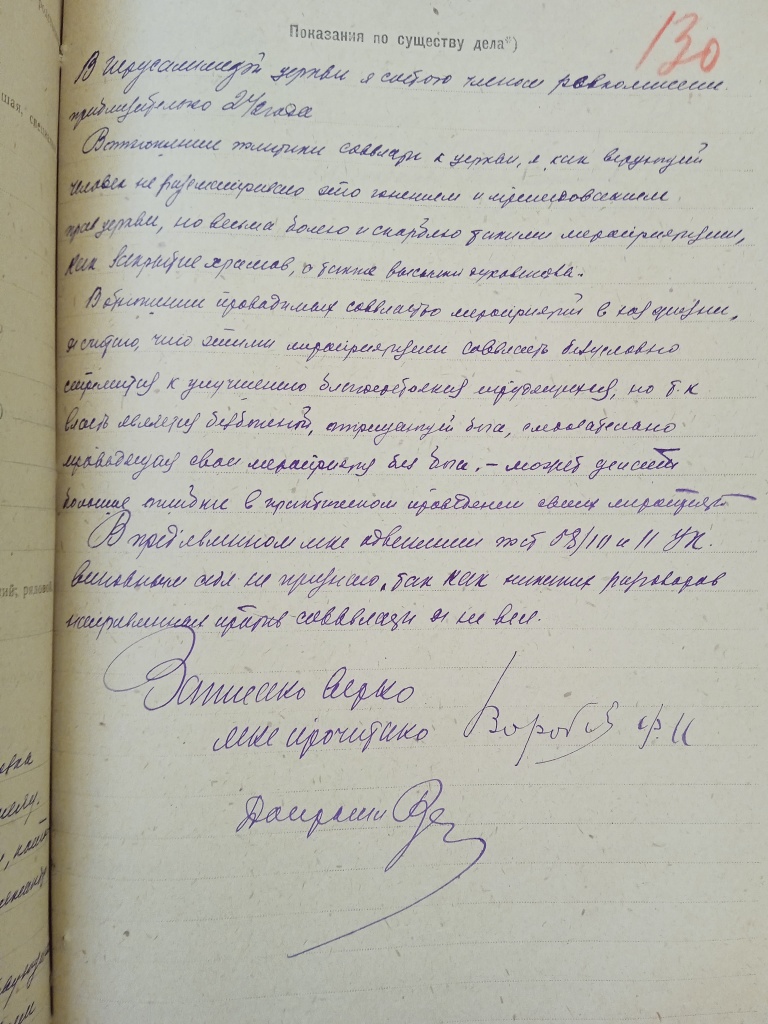 Показания по существу дела*)
130
В Иерусалимской церкви я состою членом ревкомиссии
приблизительно 2 ½ года
В отношении политики соввласти к церкви, я, как верующий
человек не рассматриваю это гонением и
прав церкви, но весьма болею и скорблю такими мероприятиями,
как закрытие храмов, а также высылки духовенства.
В отношении проводимых соввластью мероприятий в жизни,
я считаю, что этими мероприятиями соввласть безусловно
стремится к улучшению благосостояния трудящихся, но т.к
власть является безбожной, отрицающей бога, следовательно
проводящая свои мероприятия без бога, – может делать
большие ошибки в практическом проведении своих мероприятий
В предъявленном мне обвинении по ст 58/10 и 11 УК.
виновным себя не признаю, так как никаких разговоров
направленных против соввласти я не вел.
Записано верно
мне прочитано Воробьев Ф. И
Допросил